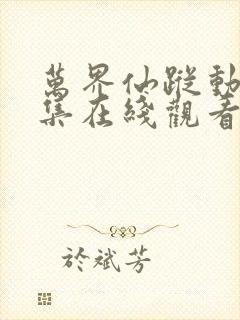 萬界仙蹤動
集在綫觀看
於斌芳